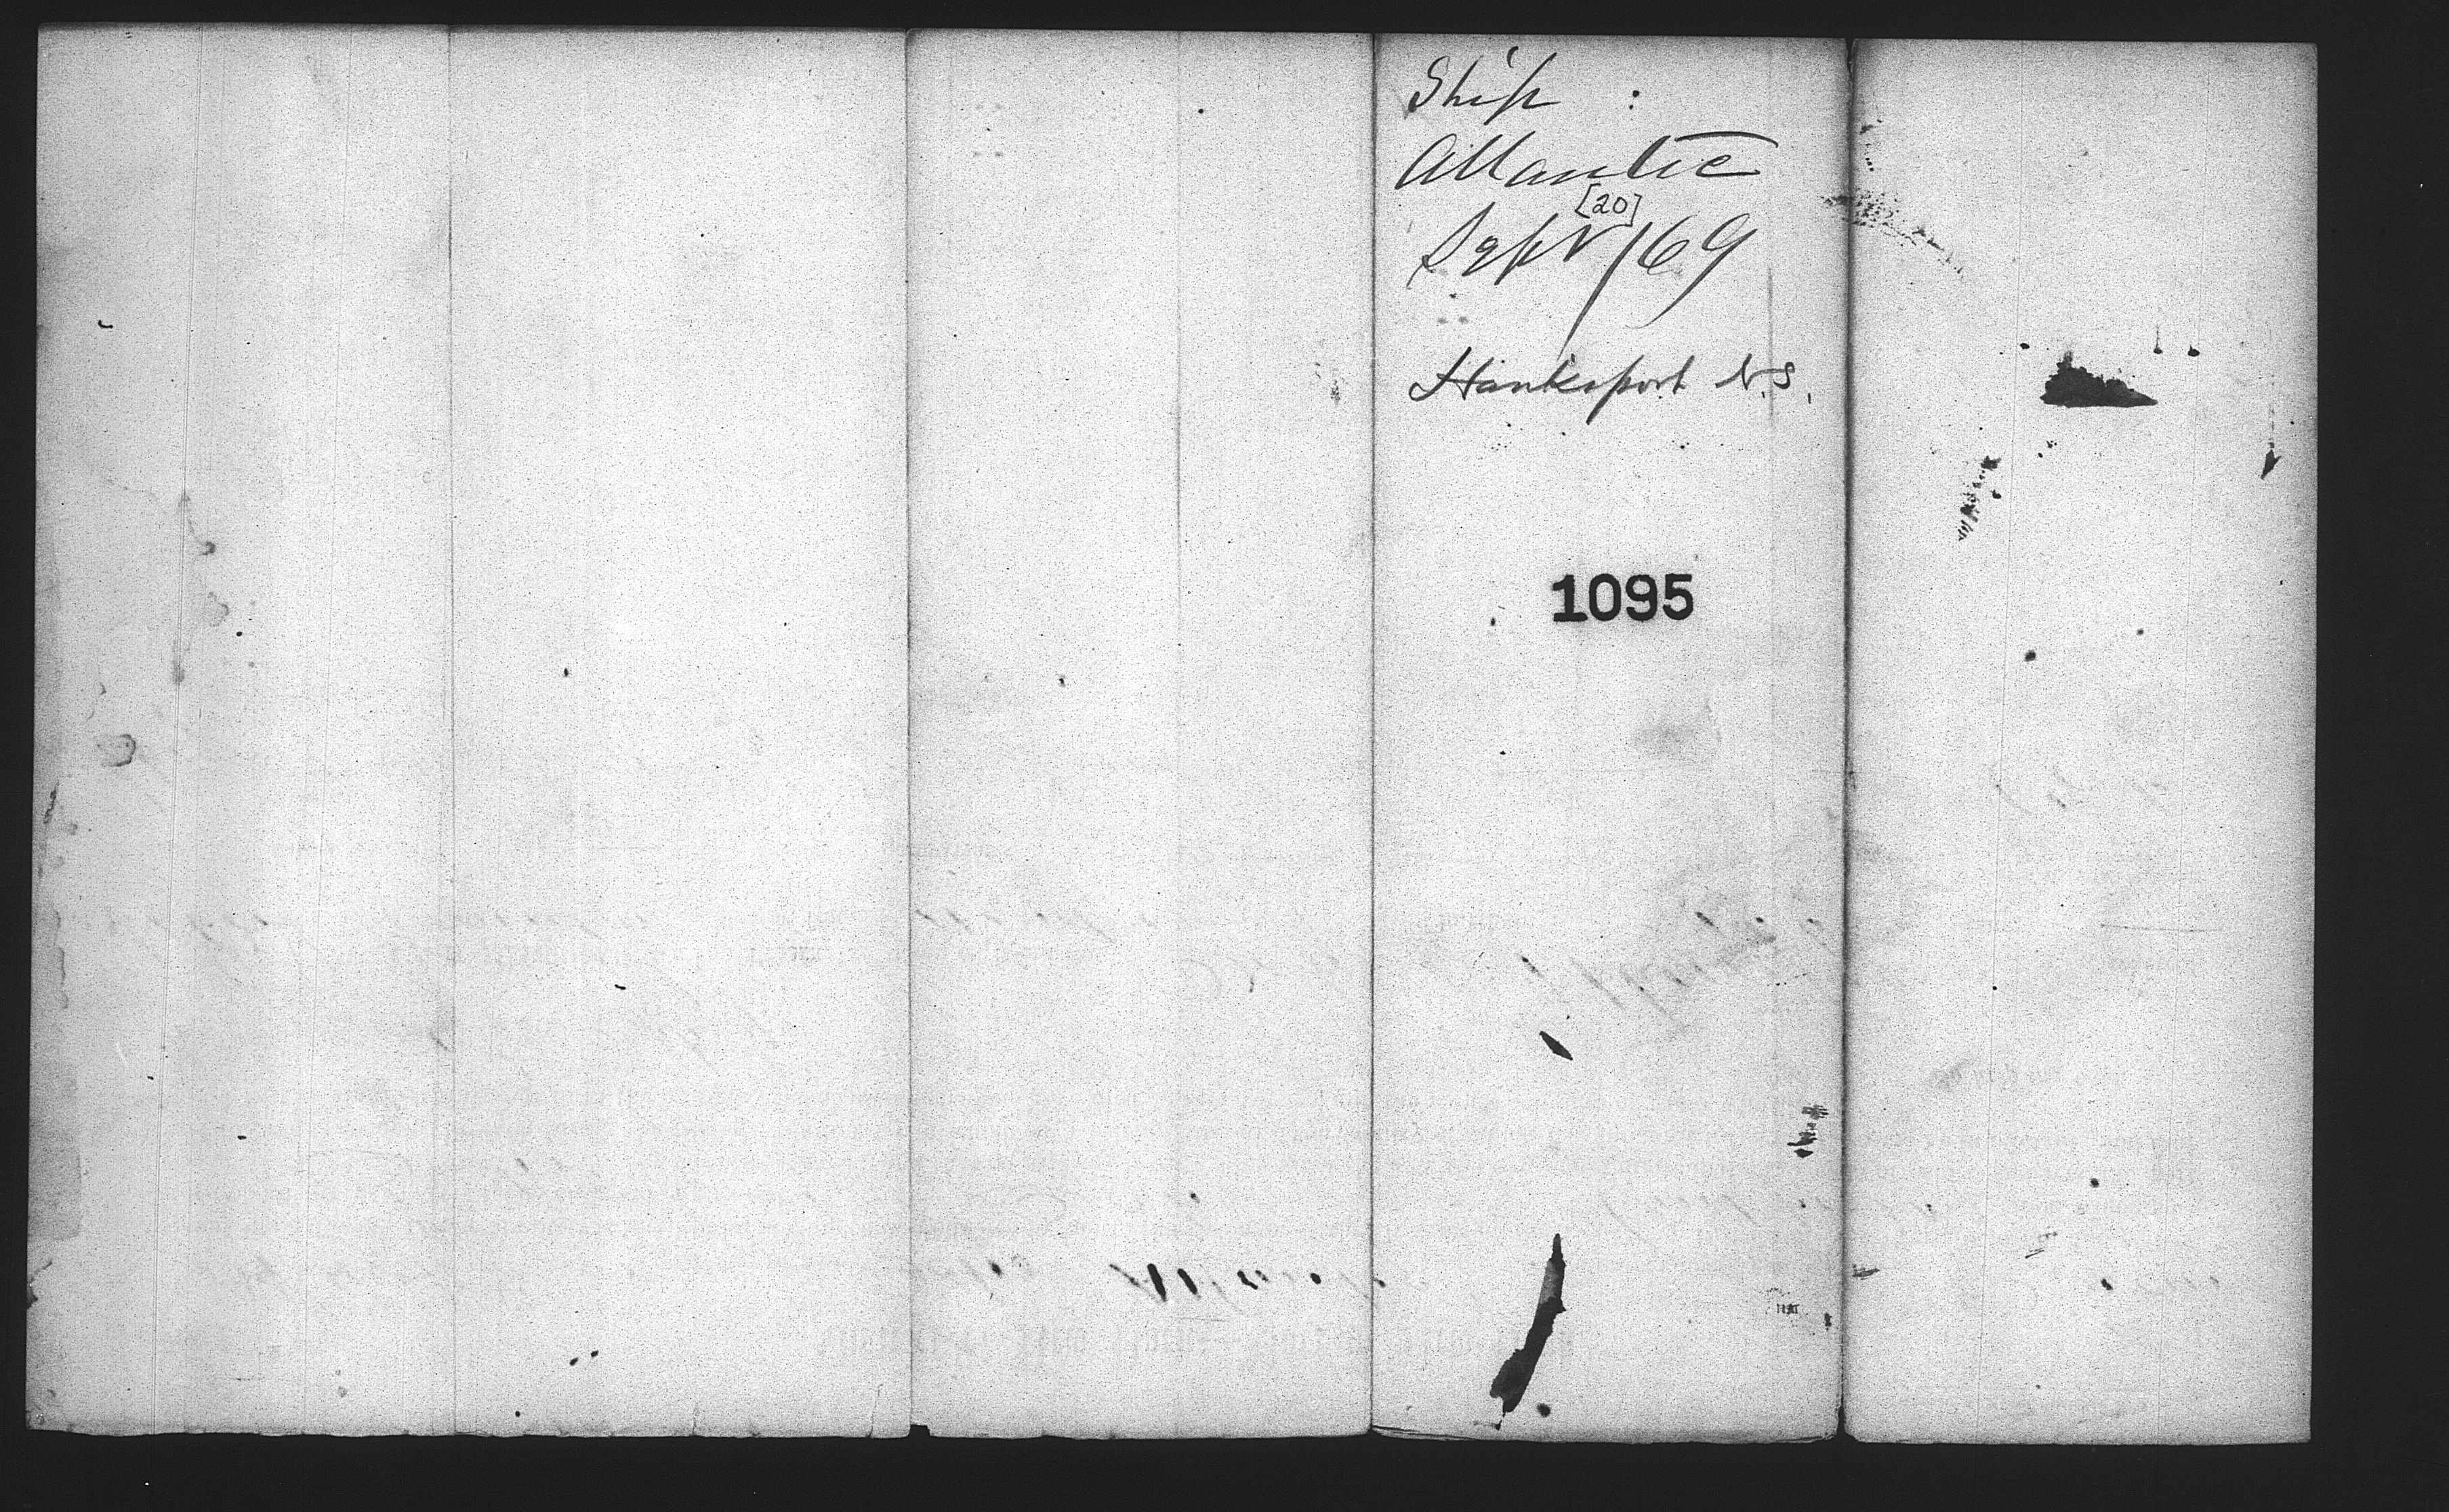 Ship :
Atlantic
[20]
Sept /69
Hanksport N.S.
1095